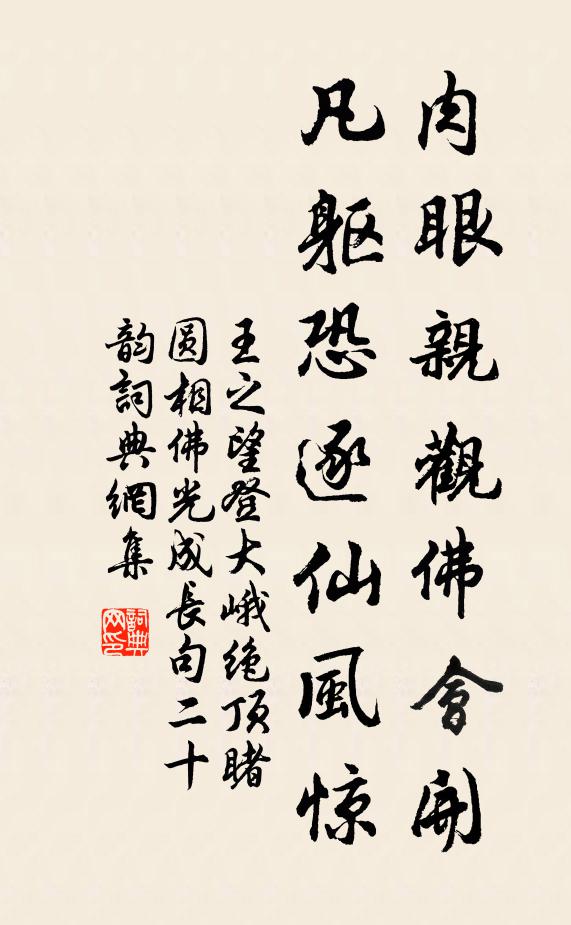 肉眼親觀佛會開
凡軀恐逐仙風惊
王之望登大峨绝頂睹
圆相佛光成長句二十
韵詞典網集
詞典网印